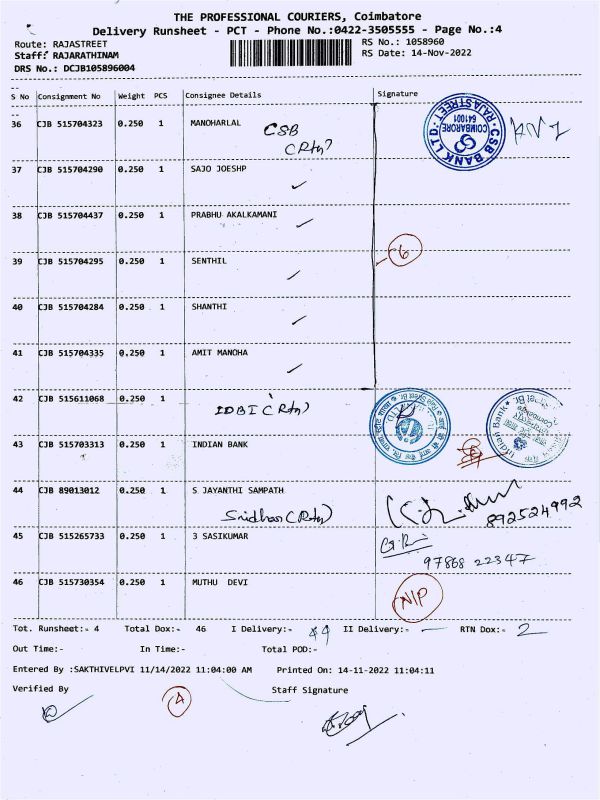 THE PROFESSIONAL COURIERS, Coimbatore
Delivery Runsheet - PCT - Phone No.:0422-3505555 - Page No.:4
Route: RAJASTREET RS No.: 1058960
Staff: RAJARATHINAM RS Date: 14-Nov-2022
DRS No.: DCJB105896004
S No Consignment No Weight PCS Consignee Details Signature
36 CJB 515704323 0.250 1 MANOHARLAL
CSB
(Rtn)
CSB BANK LTD
RAJASTREET
COIMBATORE
641001
37 CJB 515704290 0.250 1 SAJO JOESHP
38 CJB 515704437 0.250 1 PRABHU AKALKAMANI
39 CJB 515704295 0.250 1 SENTHIL
6
40 CJB 515704284 0.250 1 SHANTHI
41 CJB 515704335 0.250 1 AMIT MANOHA
42 CJB 515611068 0.250 1
IDBI (Rtn)
Indian Bank
43 CJB 515703313 0.250 1 INDIAN BANK
44 CJB 89013012 0.250 1 S JAYANTHI SAMPATH
Sridhar (Rtn)
892524992
45 CJB 515265733 0.250 1 3 SASIKUMAR
97868 22347
46 CJB 515730354 0.250 1 MUTHU DEVI
NIP
Tot. Runsheet:- 4 Total Dox:- 46 I Delivery:- II Delivery:- RTN Dox:- 2
Out Time:- In Time:- Total POD:-
Entered By :SAKTHIVELPVI 11/14/2022 11:04:00 AM Printed On: 14-11-2022 11:04:11
Verified By Staff Signature
4